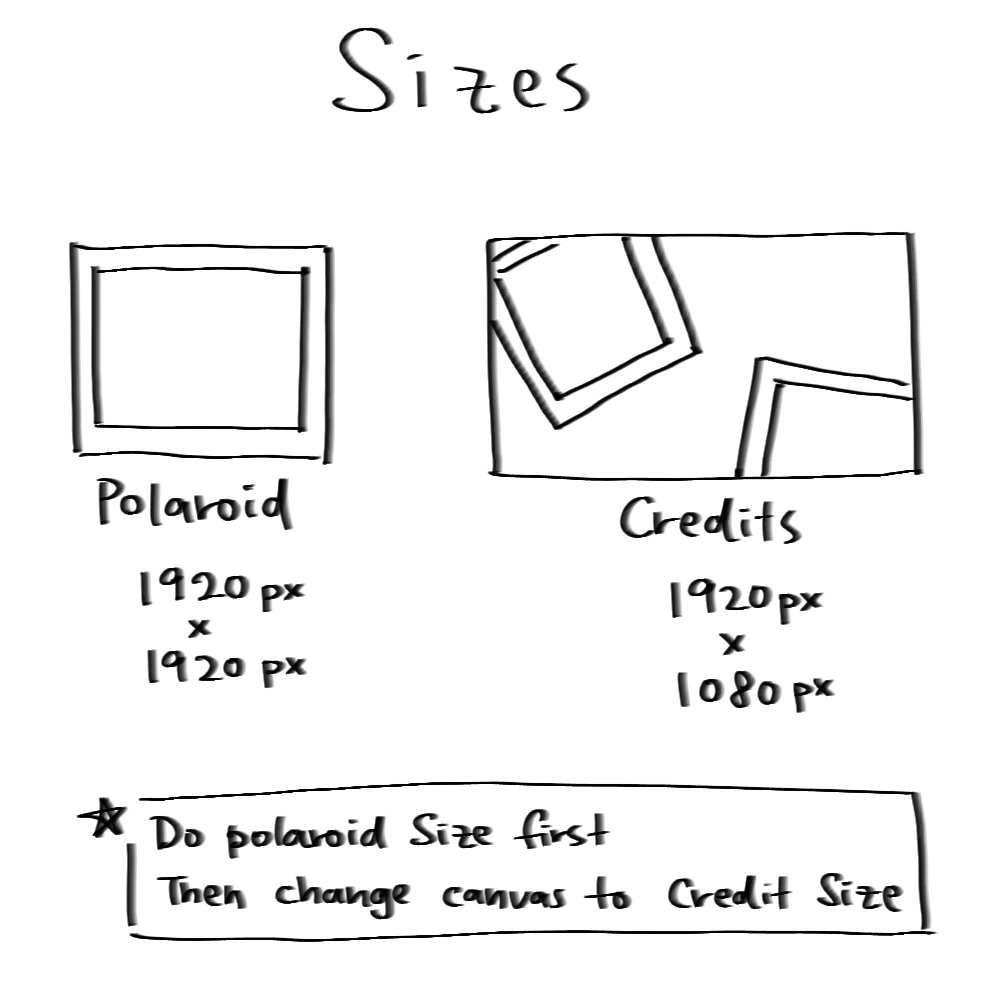 Sizes
Polaroid
1920 px
x
1920 px
Credits
1920 px
x
1080 px
☆ Do polaroid Size first
Then change canvas to Credit Size